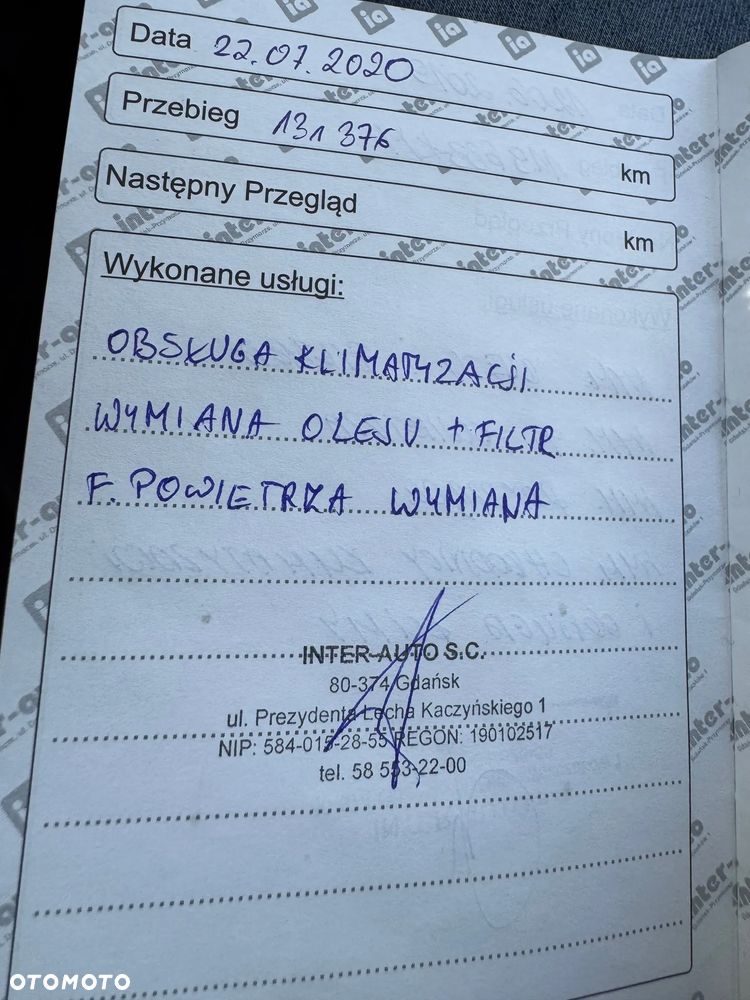 Data 22.07.2020
Przebieg 131 376 km
Następny Przegląd km
Wykonane usługi:
OBSŁUGA KLIMATYZACJI
WYMIANA OLEJU + FILTR
F. POWIETRZA WYMIANA
INTER-AUTO S.C.
80-374 Gdańsk
ul. Prezydenta Lecha Kaczyńskiego 1
NIP: 584-015-28-55 REGON: 190102517
tel. 58 553-22-00
OTOMOTO